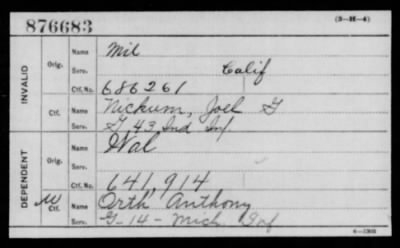 876683
(3—H—4)
INVALID
Orig.
Name Mil
Serv. Calif
Ctf. No. 686261
Ctf.
Name Nickum, Joel G
Serv. G, 43 Ind Inf
DEPENDENT
Orig.
Name Wal
Serv.
Ctf. No. 641,914
W Ctf.
Name Orth Anthony
Serv. G-14-Mich Inf